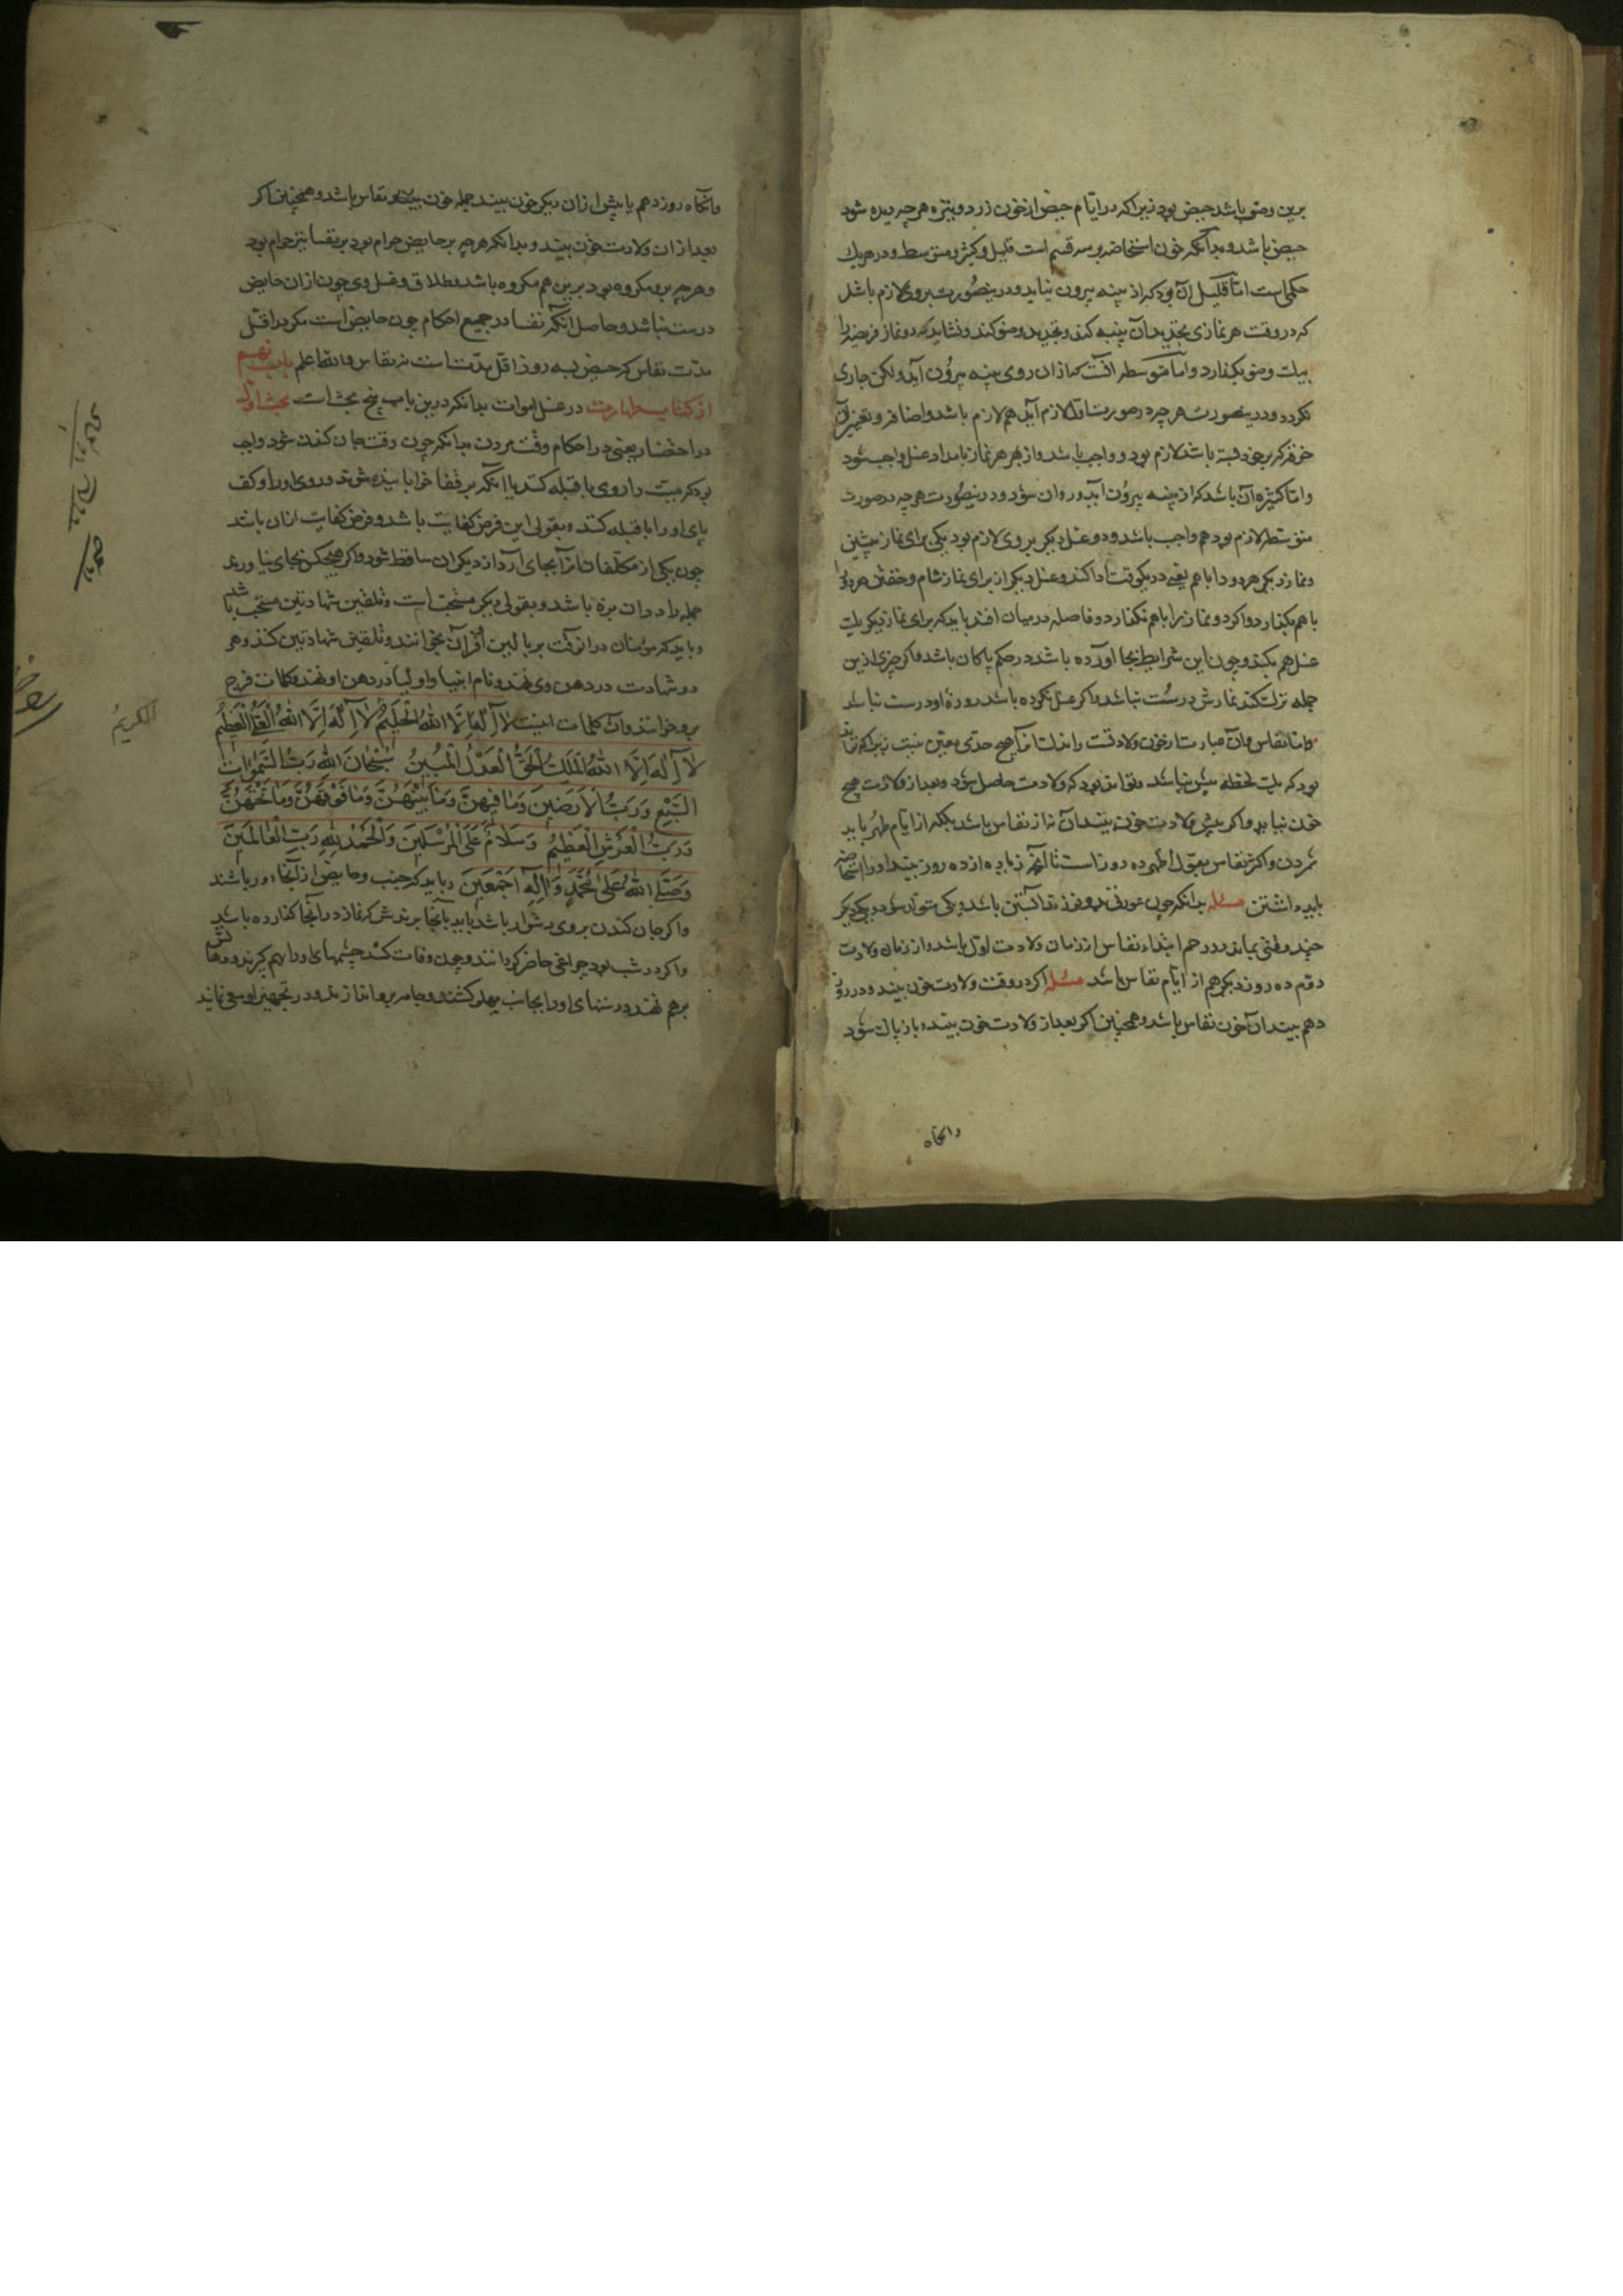 برین وصف باشد حیض بود زیرا که در ایّام حیض از خون زرد و تیره هرچه دیده شود
حیض باشد و بدانکه خون استحاضه بر سه قسم است قلیل و کثیر و متوسط و در هر یک
حکمی است امّا قلیل آن بود که از پنبه بیرون نیاید و درینصورت بروی لازم باشد
که در وقت هر نمازی تجدید آن پنبه کند و تجدید وضو کند و نشاید که دو نماز فریضه را
بیک وضو بگذارد و امّا متوسطه آنست که از آن روی پنبه بیرون آید ولکن جاری
نگردد و درینصورت هرچه در صورت لازم آید هم لازم باشد و اضافه و تغییر آن
خرقه که بر خود بسته باشد لازم بود و واجب باشد و از بهر هر نماز بامداد غسل واجب شود
و امّا کثیره آن باشد که از پنبه بیرون آید و روان شود و درینصورت هرچه در صورت
متوسّطه لازم بود هم واجب باشد و دو غسل دیگر بروی لازم بود یکی برای نماز پیشین
و نماز دیگر هر دو را با هم یعنی در یک وقت ادا کند و غسل دیگر از برای نماز شام و خفتن هر دو را
با هم بگذارد و اگر دو نماز را با هم نگذارد و فاصله در میان افتد باید که برای نماز دیگر یک
غسل هم بکند و چون این شرایط بجا آورده باشد در حکم پاکان باشد و اگر چیزی ازین
جمله ترک کند نمازش درست نباشد و اگر غسل نکرده باشد روزهٔ او درست نباشد
و امّا نفاس و آن عبارت از خون ولادتست و اقلّ آنرا هیچ حدّی معیّن نیست زیرا که شاید
بود که یک لحظه بیش نباشد و تواند بود که ولادت حاصل شود و بعد از ولادت هیچ
خون نیاید و اگر پیش از ولادت خون بیند آن نه از نفاس باشد بلکه از ایّام طهر باید
شمردن و اکثر نفاس بقول اظهر ده روز است تا آنچه زیاده از ده روز بیند او را استحاضه
باید داشتن مسئله بدانکه چون عورتی بدو فرزند آبستن باشد و یکی متولّد شود و یکی دیگر
چند وقتی بماند در رحم ابتداء نفاس از زمان ولادت اوّل باشد و از زمان ولادت
دوّم ده روز دیگر هم از ایّام نفاس باشد مسئله اگر در وقت ولادت خون بیند و در روز
دهم بیند آن خون نفاس باشد و همچنین اگر بعد از ولادت خون بیند و باز پاک شود
وانگاه
وانگاه روز دهم یا پیش از آن دیگر خون بیند جمله خون نفاس باشد و همچنان اگر
بعد از آن ولادت خون بیند و بدانکه هرچه بر حایض حرام بود بر نفسا نیز حرام بود
و هرچه برو مکروه بود برین هم مکروه باشد و طلاق و غسل وی چون از آن حایض
درست نباشد و حاصل آنکه نفسا در جمیع احکام چون حایض است مگر در اقلّ
مدّت نفاس که حیض سه روز اقل مدّت است نه نفاس والله اعلم باب نهم
از کتاب طهارت در غسل اموات بدانکه درین باب پنج بحث است بحث اوّل
در احتضار یعنی در احکام وقت مردن بدانکه چون وقت جان کندن شود واجب
بود که میت را روی با قبله کند یا آنکه بر قفا خوابانیده شود و روی او را و کف
پای او را با قبله کند و بقولی این فرض کفایت باشد و فرض کفایت آن باشد
چون یکی از مکلّفان آنرا بجای آرد از دیگران ساقط شود و اگر هیچکس بجای نیاورند
جمله را در آن بزه باشد و بقولی دیگر مستحبّ است و تلقین شهادتین مستحب باشد
و باید که مؤمنان در آن وقت بر بالین قرآن بخوانند و تلقین شهادتین کند و هر
دو شهادت در دهن وی نهند و نام انبیا و اولیا در دهن او نهند و کلمات فرج
برو خوانند و آن کلمات اینست لا اله الا الله الحلیم لا اله الا الله العلی العظیم
لا اله الا الله الملک الحق العدل المبین سبحان الله رب السموات
السبع و رب الارضین و ما فیهن و ما بینهن و ما فوقهن و ما تحتهن
و رب العرش العظیم و سلام علی المرسلین و الحمد لله رب العالمین
و صلی الله علی محمد و آله اجمعین و باید که جنب و حایض از آنجا دور باشند
و اگر جان کندن بروی دشوار باشد باید بآنجا برندش که نماز در آنجا گذارده باشد
و اگر در شب بود چراغی حاضر گردانند و چون وفات کند چشمهای او را بهم گیرند و دهانش
برهم نهند و دستهای او را بجانب پهلو کشند و جامه برو اندازند و در تجهیز او سعی نمایند
الکریم